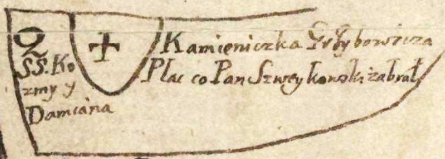 SS. Ko
zmy y
Damiana
Kamieniczka Grzybowicza
Plac co Pan Szweykowski zabrał